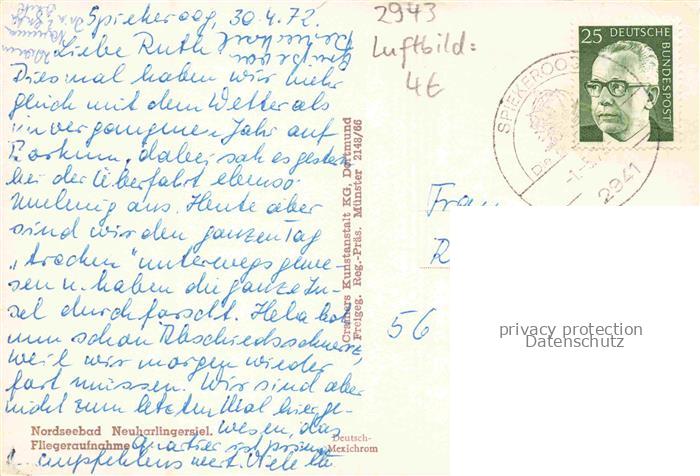 Spiekeroog, 30.4.72.
Liebe Ruth
Diesmal haben wir mehr
glück mit dem Wetter als
im vergangenen Jahr auf
Borkum, dabei sah es gestern
bei der Überfahrt ebenso
mulmig aus. Heute aber
sind wir den ganzen Tag
"trocken" unterwegs gewe-
sen u. haben die ganze In-
sel durchforscht. Hela hat
nun schon Abschiedsschmerz,
weil wir morgen wieder
fort müssen. Wir sind aber
nicht zum letzten Mal hier ge-
wesen, das
Quartier ist prima
empfehlenswert. Viele
Nordseebad Neuharlingersiel.
Fliegeraufnahme
Deutsch-
Mexichrom
Cramers Kunstanstalt KG. Dortmund
Freigeg. Reg.-Präs. Münster 2148/66
2943
Luftbild:
4€
25 DEUTSCHE
BUNDESPOST
SPIEKEROOG
2941
Frau
R
56
privacy protection
Datenschutz